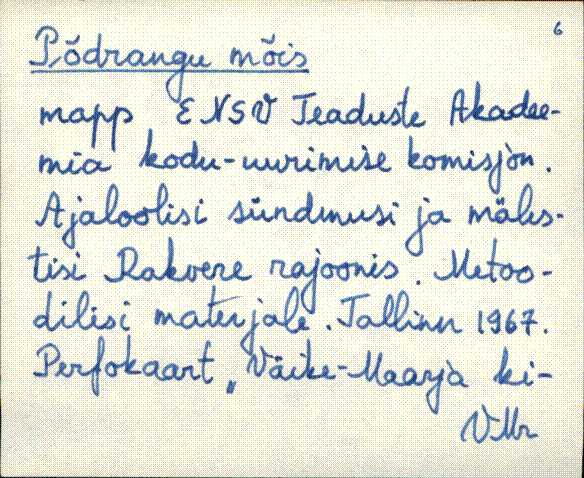 6
Põdrangu mõis
mapp ENSV Teaduste Akadee-
mia kodu-uurimise komisjon.
Ajaloolisi sündmusi ja mäles-
tisi Rakvere rajoonis. Metoo-
dilisi materjale. Tallinn 1967.
Perfokaart „Väike-Maarja ki-
VMr